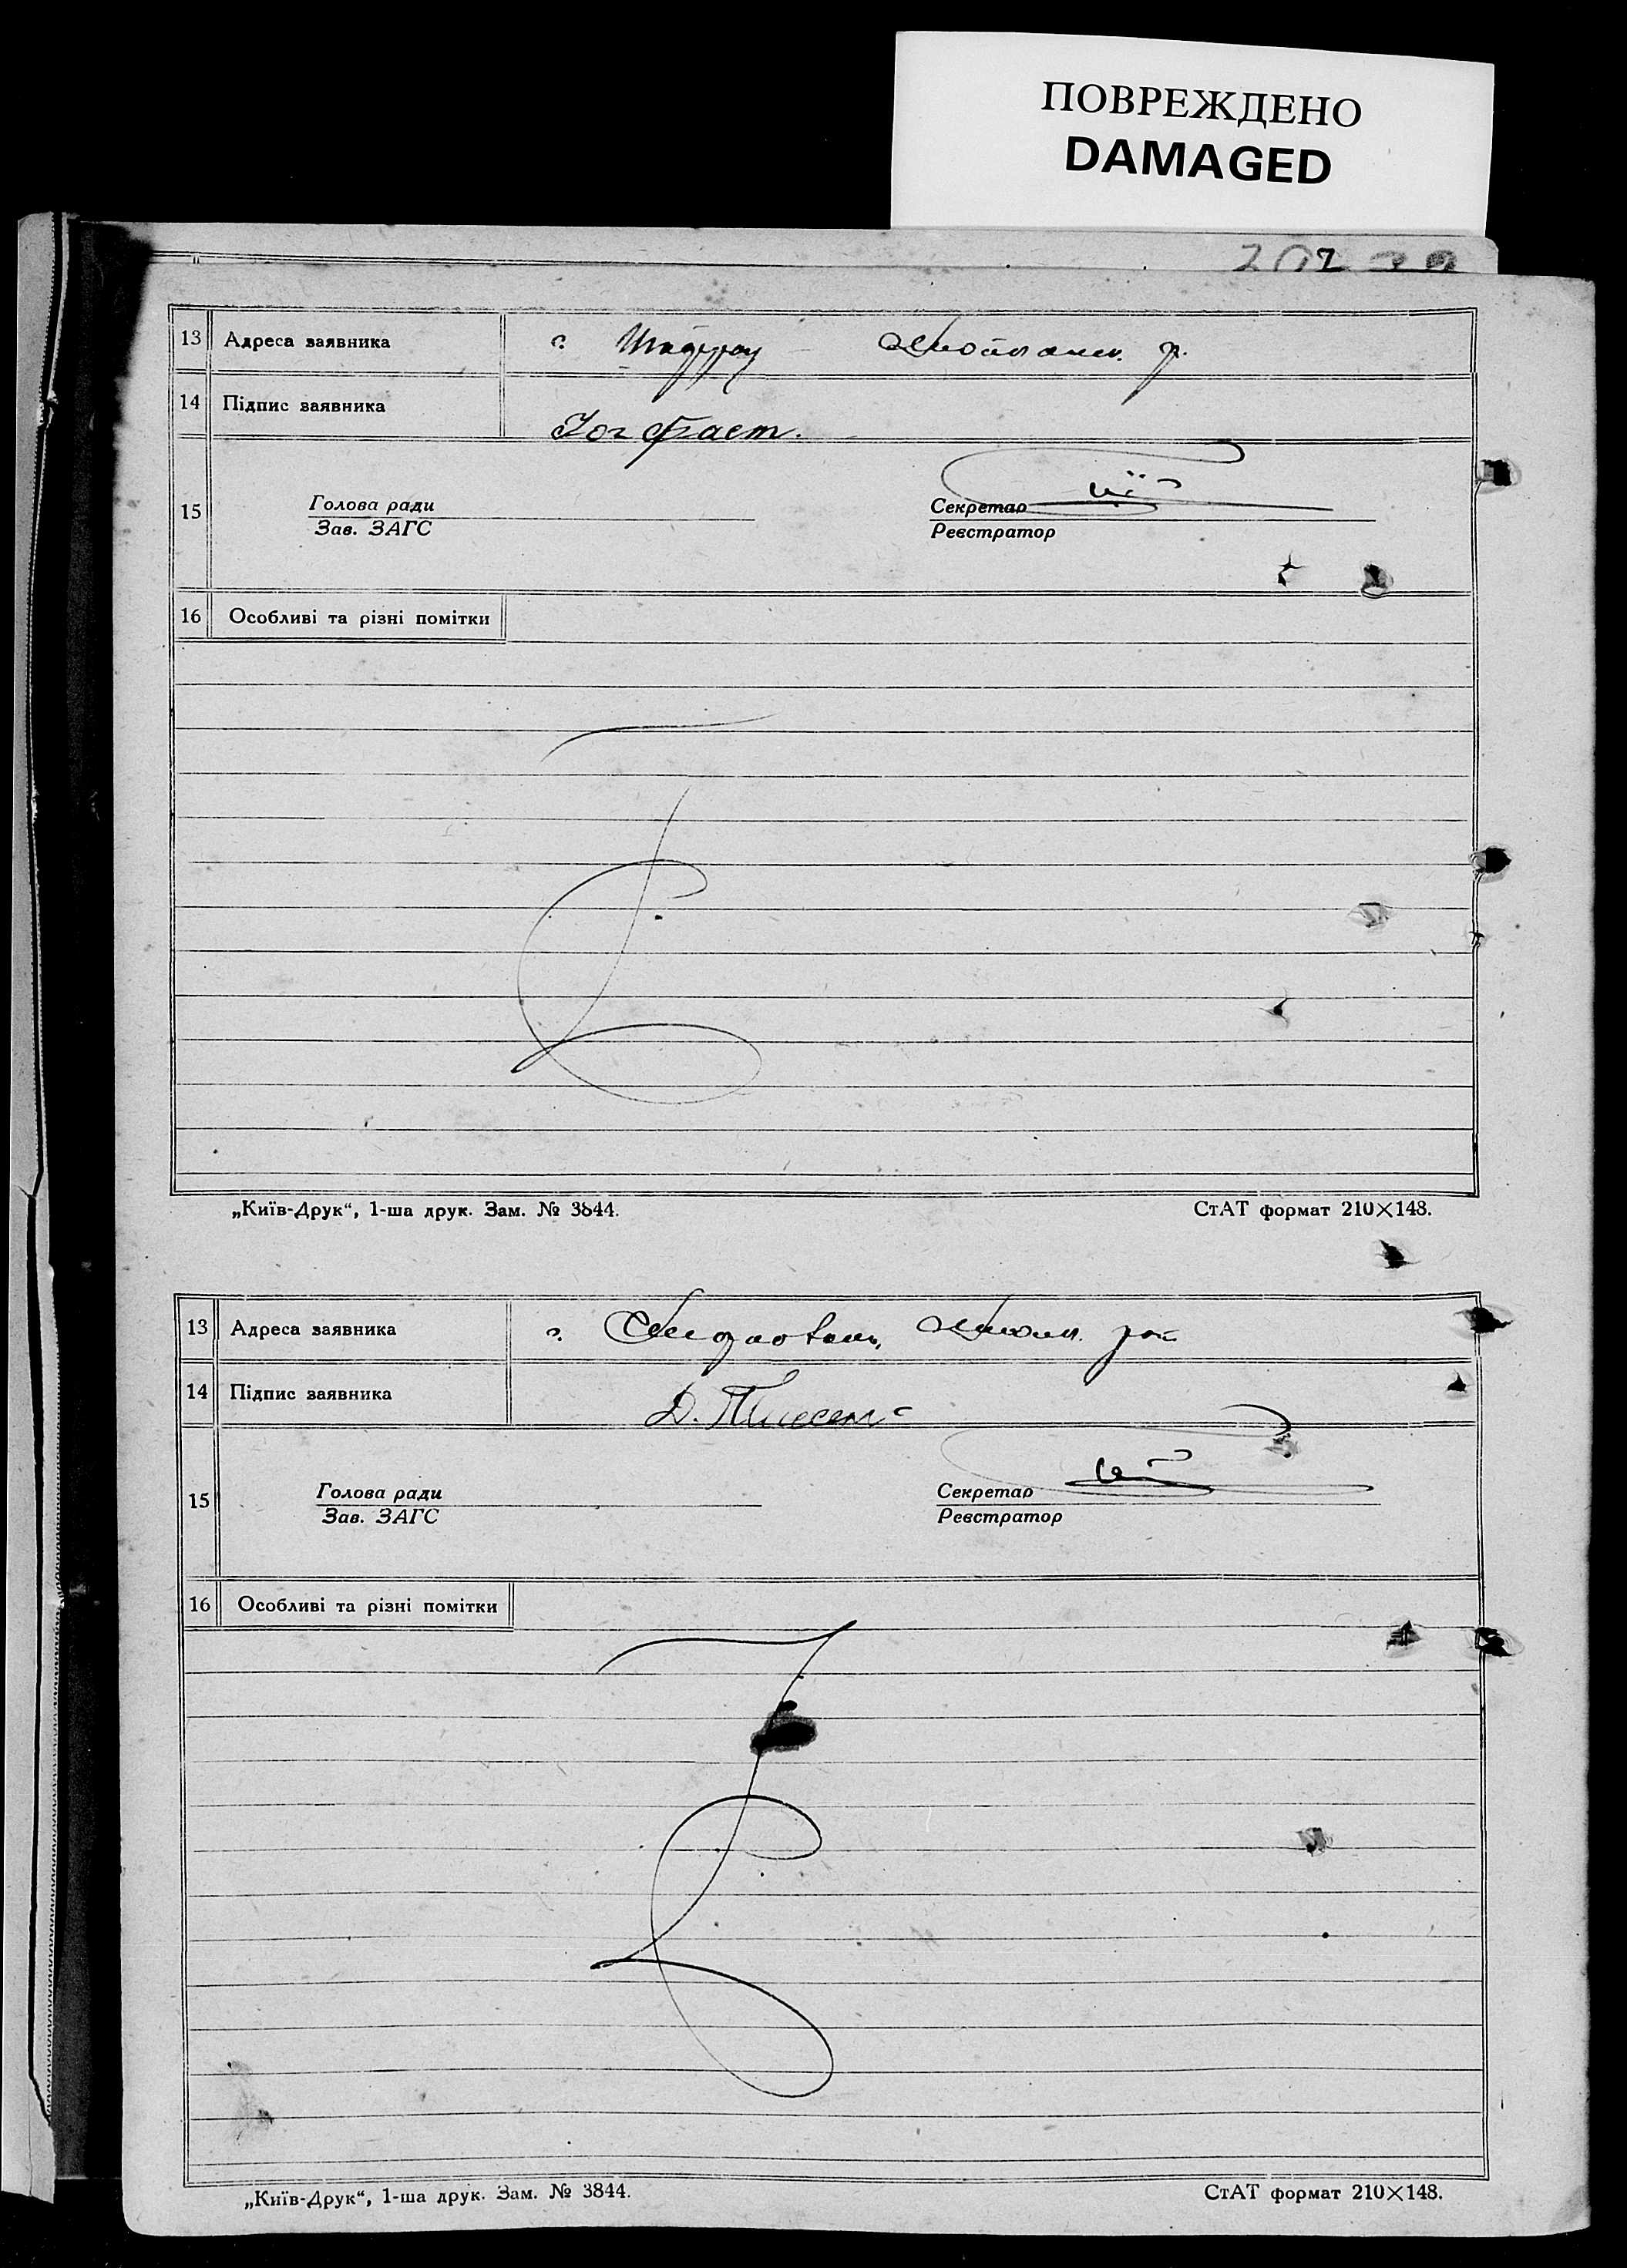 ПОВРЕЖДЕНО
DAMAGED
13 Адреса заявника с.
14 Підпис заявника Іог Фаст.
15 Голова ради Секретар
Зав. ЗАГС Реєстратор
16 Особливі та різні помітки
„Київ-Друк“, 1-ша друк. Зам. № 3844. СтАТ формат 210×148.
13 Адреса заявника с.
14 Підпис заявника Д.
15 Голова ради Секретар
Зав. ЗАГС Реєстратор
16 Особливі та різні помітки
„Київ-Друк“, 1-ша друк. Зам. № 3844. СтАТ формат 210×148.